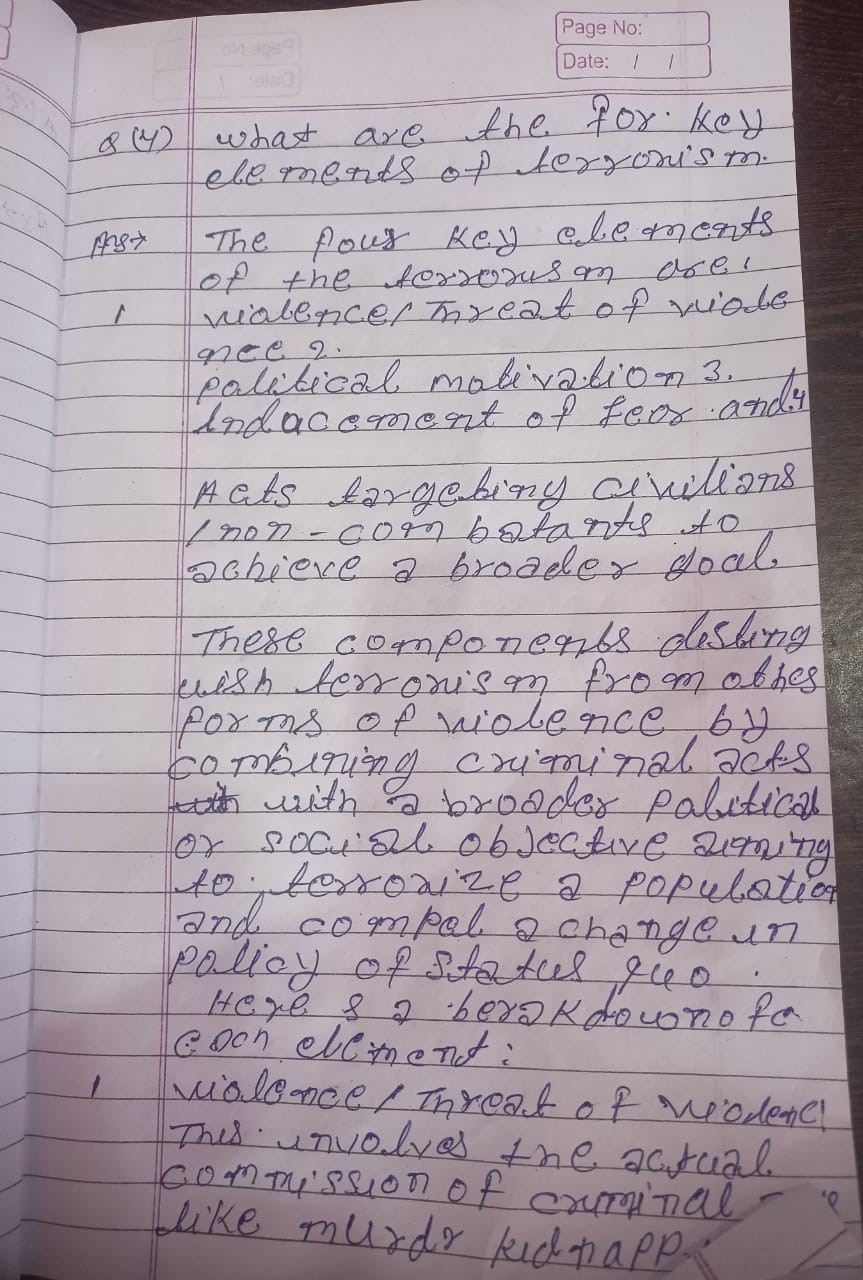 Page No:
Date: / /
Q (4) what are the for key
elements of terrorism.
Ans→ The four key elements
of the terrorusm are:
1 violence/Threat of viole
nce 2.
political motivation 3.
Indacement of fear and 4
Acts targeting civilians
/non-combatants to
achieve a broader goal.
These components disting
uish terrorism from other
forms of violence by
combining criminal acts
with a broader political
or social objective aiming
to terrorize a population
and compel a change in
policy of status quo.
Here s a berakdown of
each element:
1 violence/Threat of violenc
This involves the actual
commission of criminal
like murdr kidnapp